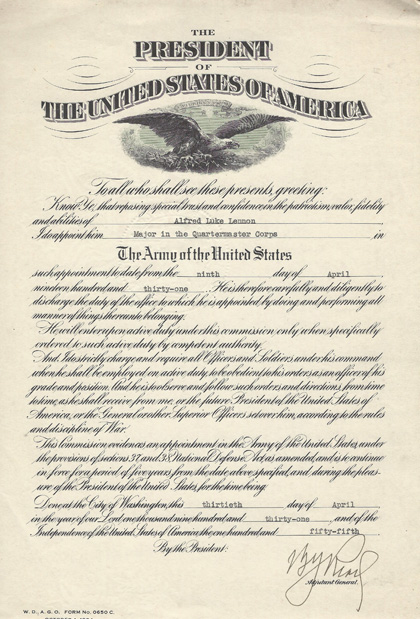 THE
PRESIDENT
OF
THE UNITED STATES OF AMERICA
To all who shall see these presents, greeting:
Know Ye, that reposing special trust and confidence in the patriotism, valor, fidelity
and abilities of Alfred Luke Lennon
I do appoint him Major in the Quartermaster Corps in
The Army of the United States
such appointment to date from the ninth day of April
nineteen hundred and thirty-one. He is therefore carefully and diligently to
discharge the duty of the office to which he is appointed by doing and performing all
manner of things thereunto belonging.
He will enter upon active duty under this commission only when specifically
ordered to such active duty by competent authority.
And I do strictly charge and require all Officers and Soldiers under his command
when he shall be employed on active duty to be obedient to his orders as an officer of his
grade and position. And he is to observe and follow such orders and directions, from time
to time, as he shall receive from me, or the future President of the United States of
America, or the General or other Superior Officers set over him, according to the rules
and discipline of War.
This Commission evidences an appointment in the Army of the United States, under
the provisions of sections 37 and 38, National Defense Act, as amended, and is to continue
in force for a period of five years from the date above specified, and during the pleas-
ure of the President of the United States, for the time being.
Done at the City of Washington, this thirtieth day of April
in the year of our Lord one thousand nine hundred and thirty-one, and of the
Independence of the United States of America the one hundred and fifty-fifth.
By the President:
Adjutant General.
W. D., A. G. O. FORM No. 0650 C.